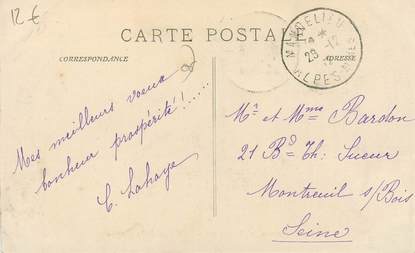 12€
CARTE POSTALE
CORRESPONDANCE
ADRESSE
MANDELIEU
28-12
ALPES
Mes meilleurs voeux
bonheur prospérité!......
C. Lahaye
Mr et Mme Bardon
21 Bd Th: Sueur
Montreuil s/Bois
Seine